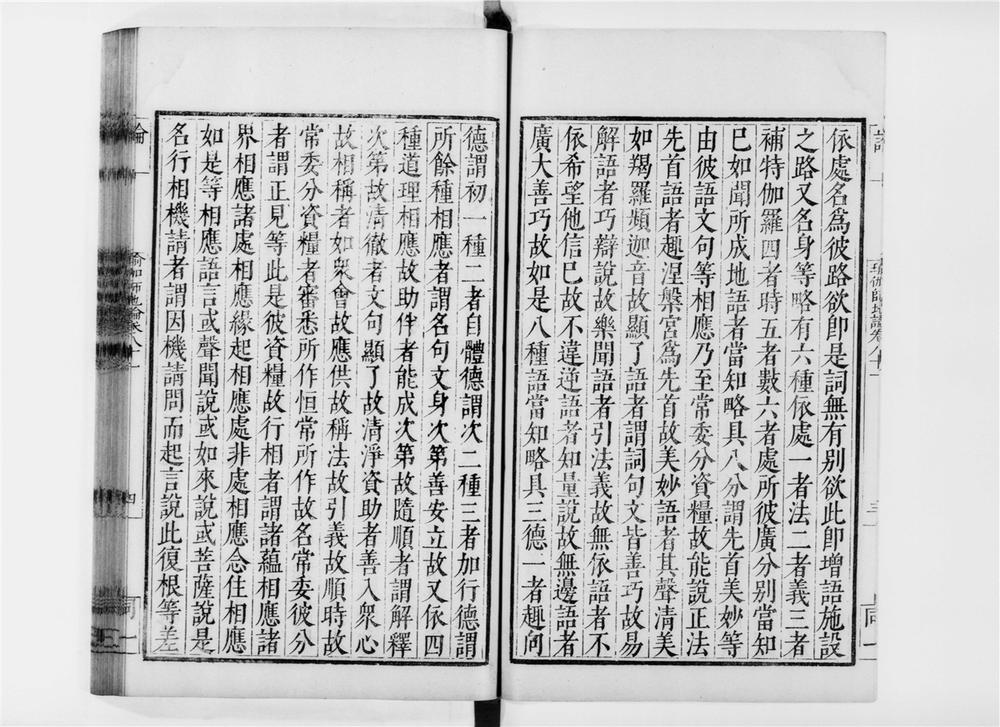 依處名爲彼路欲卽是詞無有别欲此卽增語施設
之路又名身等略有六種依處一者法二者義三者
補特伽羅四者時五者數六者處所彼廣分别當知
已如聞所成地語者當知略具八分謂先首美妙等
由彼語文句等相應乃至常委分資糧故能說正法
先首語者趣涅槃宮爲先首故美妙語者其聲清美
如羯羅頻迦音故顯了語者謂詞句文皆善巧故易
解語者巧辯說故樂聞語者引法義故無依語者不
依希望他信已故不違逆語者知量說故無邊語者
廣大善巧故如是八種語當知略具三德一者趣向
德謂初一種二者自體德謂次二種三者加行德謂
所餘種相應者謂名句文身次第善安立故又依四
種道理相應故助伴者能成次第故隨順者謂解釋
次第故清徹者文句顯了故清淨資助者善入衆心
故相稱者如衆會故應供故稱法故引義故順時故
常委分資糧者審悉所作恒常所作故名常委彼分
者謂正見等此是彼資糧故行相者謂諸蘊相應諸
界相應諸處相應緣起相應處非處相應念住相應
如是等相應語言或聲聞說或如來說或菩薩說是
名行相機請者謂因機請問而起言說此復根等差